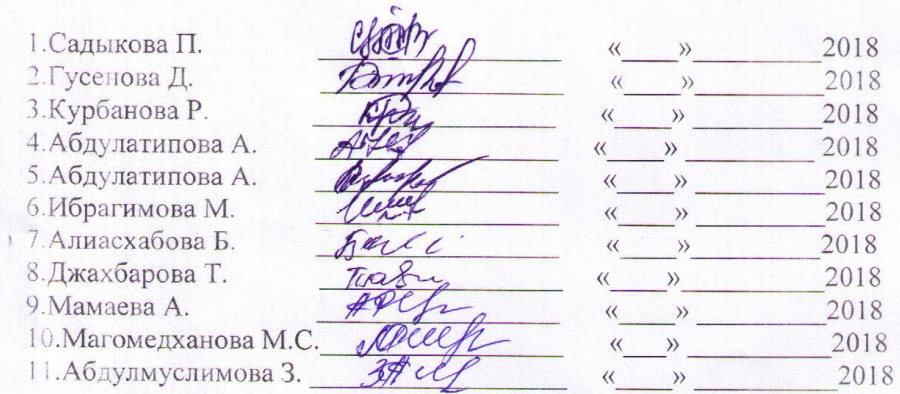 1.Садыкова П. ____________________ «____» __________2018
2.Гусенова Д. ____________________ «____» __________2018
3.Курбанова Р. ____________________ «____» __________2018
4.Абдулатипова А. ____________________ «____» __________ 2018
5.Абдулатипова А. ____________________ «____» __________2018
6.Ибрагимова М. ____________________ «____» __________2018
7.Алиасхабова Б. ____________________ «____» __________2018
8.Джахбарова Т. ____________________ «____» __________2018
9.Мамаева А. ____________________ «____» __________2018
10.Магомедханова М.С. ____________________ «____» __________2018
11.Абдулмуслимова З. ____________________ «____» __________2018